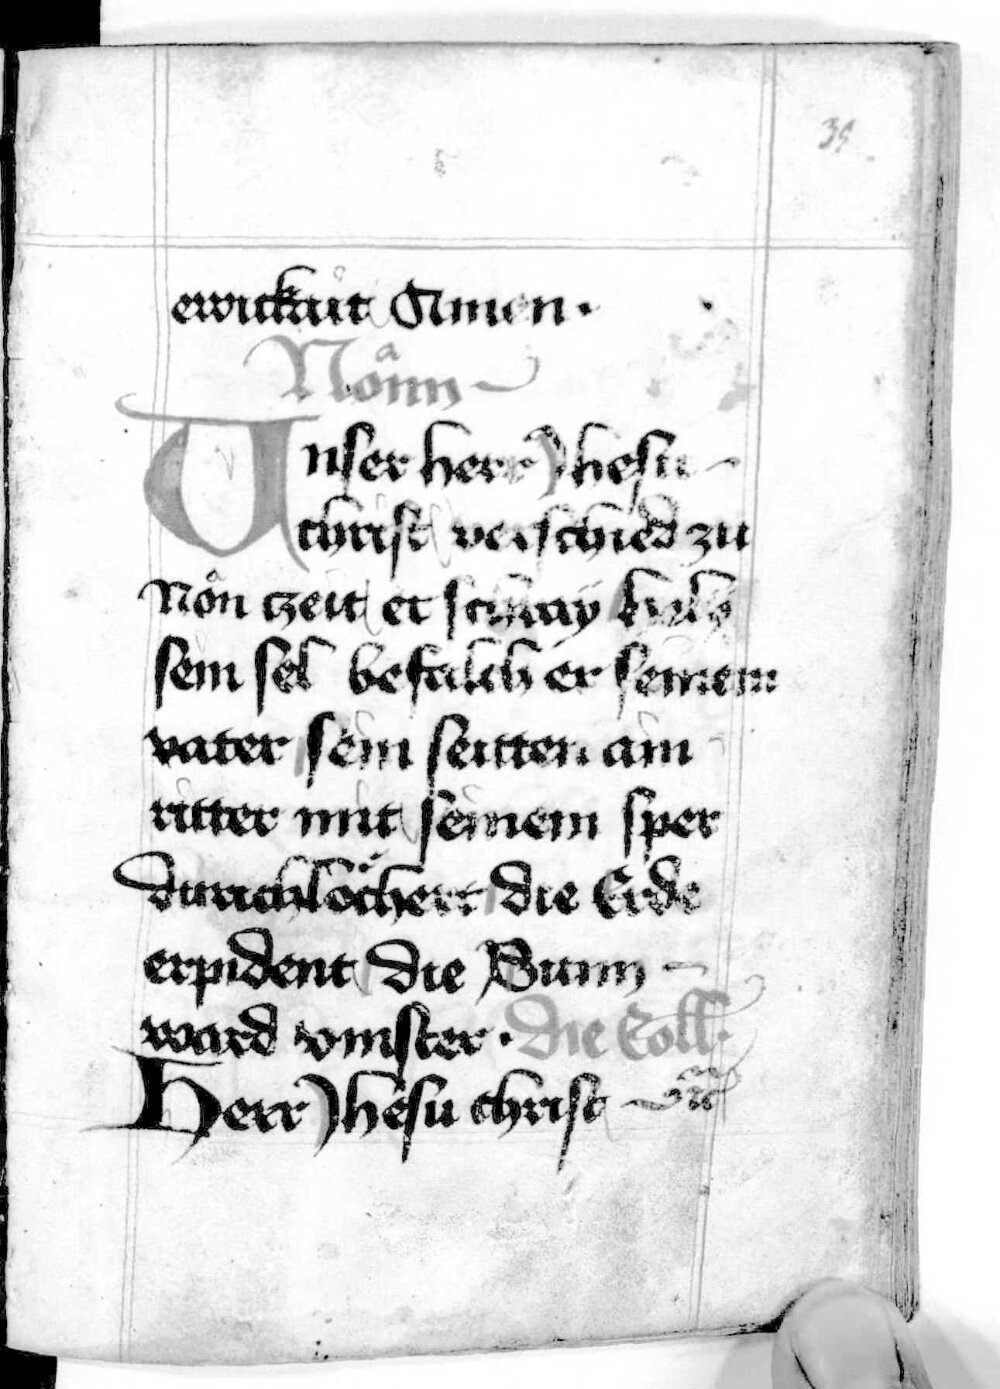 39
ewickait Amen ·
Noͣnn
Vnser herr Jhesu
christ verschied zu
Noͣn tzeit er schray hely
sein sel befalch er seinem
vater sein seitten ain
ritter mit seinem sper
durichlöchert die Erde
erpident die Sunn
ward vinster · Die Coll
Herr Jhesu christ